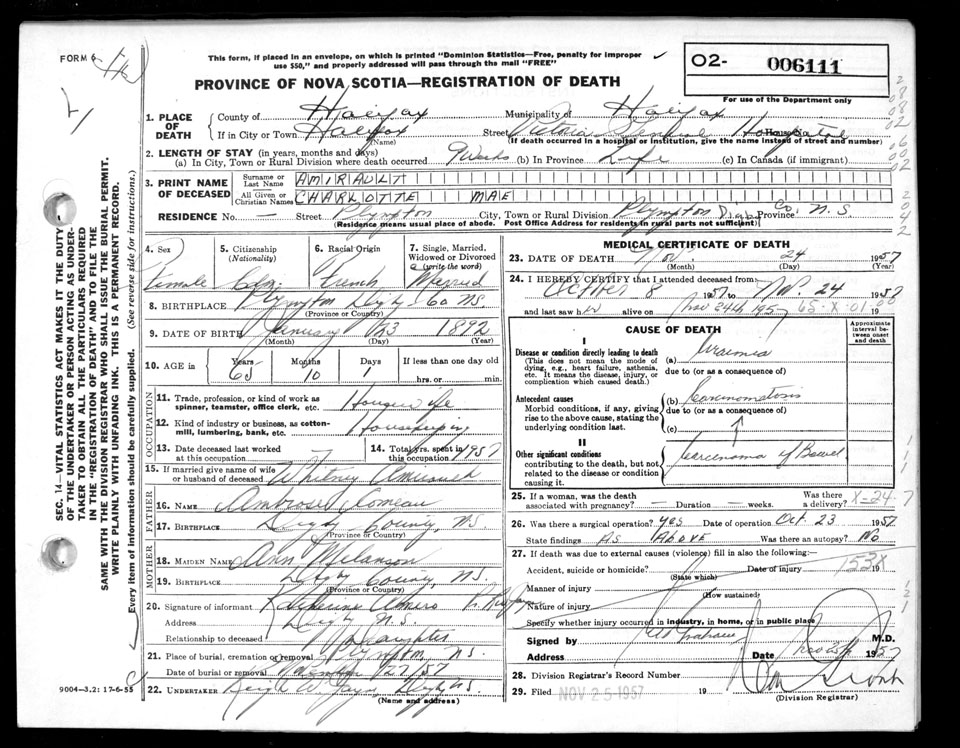 FORM 6
This form, if placed in an envelope, on which is printed "Dominion Statistics—Free, penalty for improper
use $50," and properly addressed will pass through the mail "FREE"
PROVINCE OF NOVA SCOTIA—REGISTRATION OF DEATH
O2- 006111
For use of the Department only
1. PLACE OF DEATH
County of Halifax Municipality of Halifax
If in City or Town Halifax (Name) Street Victoria General Hospital House No.
(If death occurred in a hospital or institution, give the name instead of street and number)
2. LENGTH OF STAY (in years, months and days)
(a) In City, Town or Rural Division where death occurred 9 Weeks (b) In Province Life (c) In Canada (if immigrant)
3. PRINT NAME OF DECEASED
Surname or Last Name AMIRAULT
All Given or Christian Names CHARLOTTE MAE
RESIDENCE No. — Street Plympton City, Town or Rural Division Plympton Digby Co. Province N.S.
(Residence means usual place of abode. Post Office Address for residents in rural parts not sufficient)
4. Sex Female
5. Citizenship (Nationality) Cdn.
6. Racial Origin French
7. Single, Married, Widowed or Divorced (write the word) Married
8. BIRTHPLACE Plympton Digby Co NS
(Province or Country)
9. DATE OF BIRTH January 23 1892
(Month) (Day) (Year)
10. AGE in Years 65 Months 10 Days 1 If less than one day old
hrs. or min.
OCCUPATION
11. Trade, profession, or kind of work as spinner, teamster, office clerk, etc. Housewife
12. Kind of industry or business, as cotton-mill, lumbering, bank, etc. Housekeeping
13. Date deceased last worked at this occupation
14. Total yrs. spent in this occupation 1957
15. If married give name of wife or husband of deceased Whitney Amirault
FATHER
16. NAME Ambrose Comeau
17. BIRTHPLACE Digby County, NS
(Province or Country)
MOTHER
18. MAIDEN NAME Ann Melanson
19. BIRTHPLACE Digby County, NS.
(Province or Country)
20. Signature of informant Katherine Amiro
Address Digby N.S.
Relationship to deceased Daughter
21. Place of burial, cremation or removal Plympton NS.
Date of burial or removal November 27/57
22. UNDERTAKER Digby NS
(Name and address)
9004—3.2: 17-6-55
MEDICAL CERTIFICATE OF DEATH
23. DATE OF DEATH Nov. 24 1957
(Month) (Day) (Year)
24. I HEREBY CERTIFY that I attended deceased from
October 8 1957 to Nov. 24 1957
and last saw her alive on Nov 24th 1957 65-X-01-00 19
CAUSE OF DEATH
Approximate interval between onset and death
I
Disease or condition directly leading to death (a) Uraemia
(This does not mean the mode of dying, e.g., heart failure, asthenia, etc. It means the disease, injury, or complication which caused death.)
due to (or as a consequence of)
Antecedent causes (b) Carcinomatosis
Morbid conditions, if any, giving rise to the above cause, stating the underlying condition last.
due to (or as a consequence of)
(c)
II
Other significant conditions Carcinoma of Bowel
contributing to the death, but not related to the disease or condition causing it.
25. If a woman, was the death associated with pregnancy? — Duration — weeks. Was there a delivery? X-24
26. Was there a surgical operation? yes Date of operation Oct 23 1957
State findings AS ABOVE Was there an autopsy? No
27. If death was due to external causes (violence) fill in also the following:—
Accident, suicide or homicide? Date of injury 153X 19
(State which)
Manner of injury
(How sustained)
Nature of injury
Specify whether injury occurred in industry, in home, or in public place
Signed by M.D.
Address Date Nov 1957
28. Division Registrar's Record Number
29. Filed NOV 25 1957 19
(Division Registrar)
SEC. 14—VITAL STATISTICS ACT MAKES IT THE DUTY
OF THE UNDERTAKER OR PERSON ACTING AS UNDER-
TAKER TO OBTAIN ALL THE PARTICULARS REQUIRED
IN THE "REGISTRATION OF DEATH" AND TO FILE THE
SAME WITH THE DIVISION REGISTRAR WHO SHALL ISSUE THE BURIAL PERMIT.
WRITE PLAINLY WITH UNFADING INK. THIS IS A PERMANENT RECORD.
Every item of information should be carefully supplied. (See reverse side for instructions.)